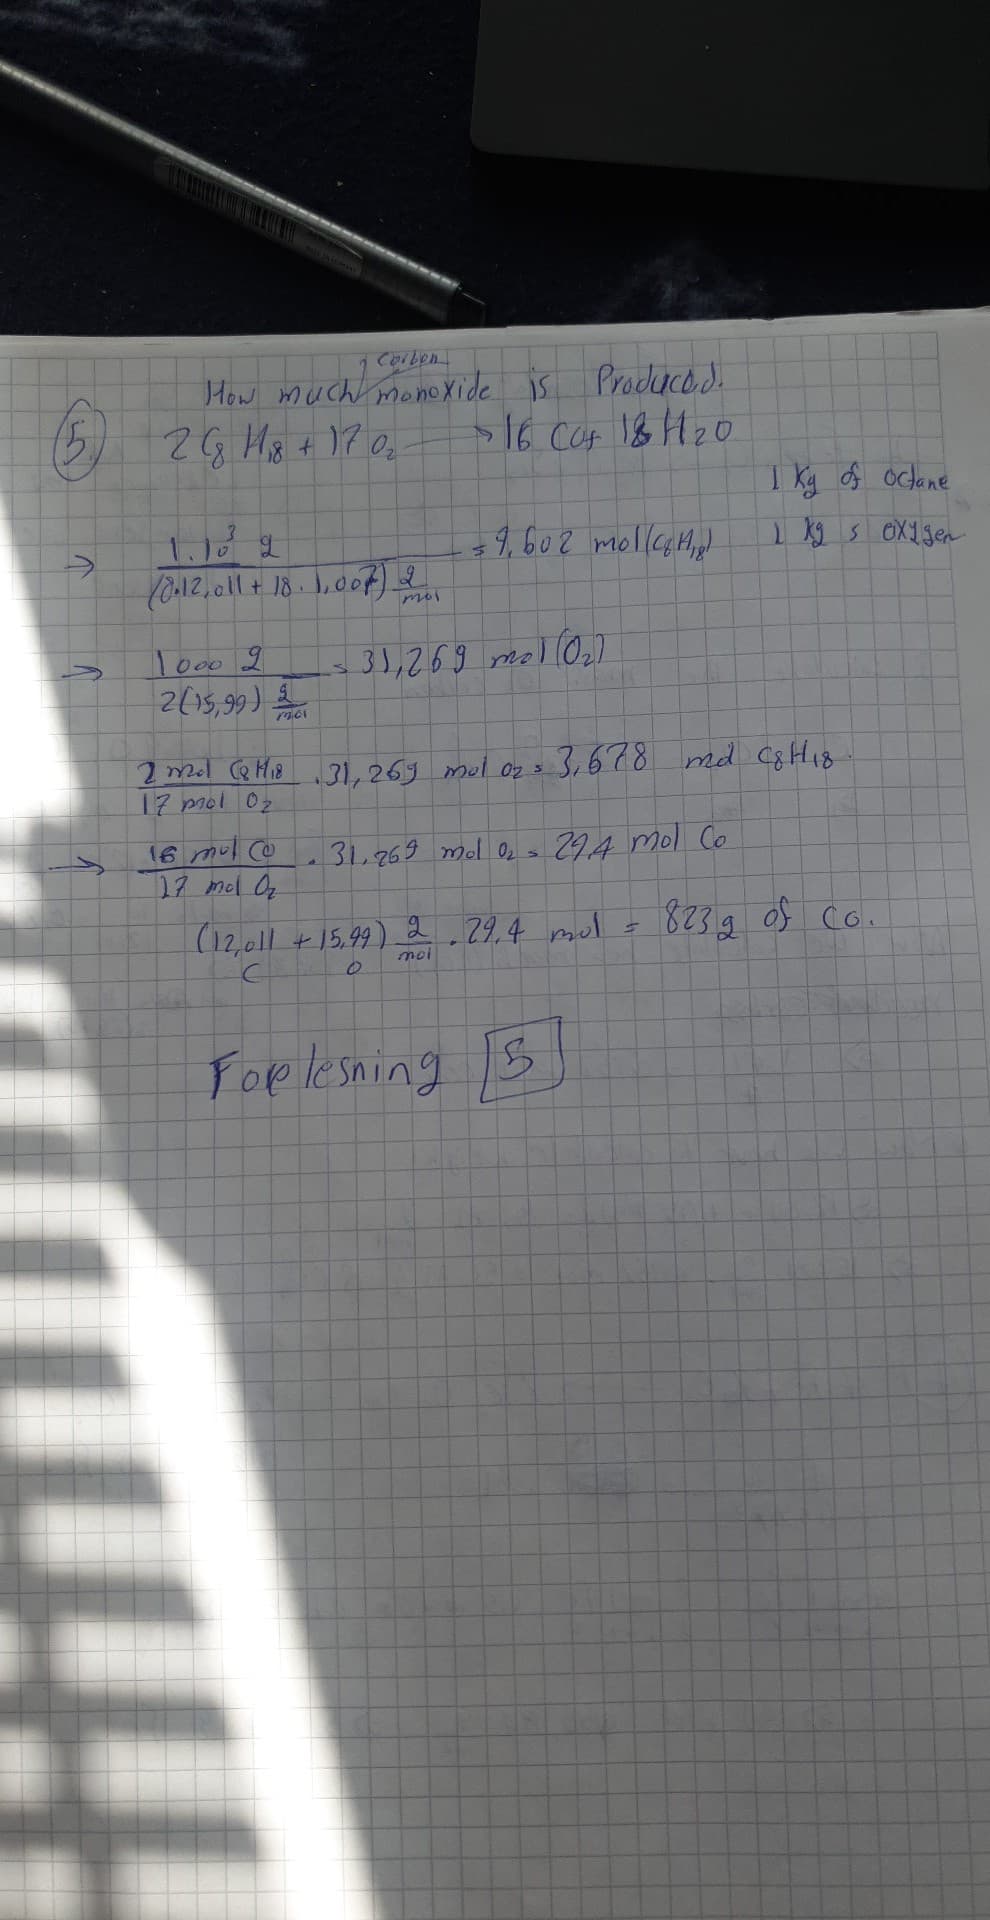 Carbon
How much monoxide is Produced.
5. 2 C8 H18 + 17 O2 → 16 CO + 18 H2O
1 Kg of octane
→ 1.10³ g / (8.12,011 + 18.1,007) g/mol = 9,602 mol (C8H18) 1 kg s oxygen
→ 1000 g / 2(15,99) g/mol = 31,269 mol (O2)
2 mol C8H18 / 17 mol O2 . 31,269 mol O2 = 3,678 mol C8H18.
→ 16 mol CO / 17 mol O2 . 31,269 mol O2 = 29,4 mol Co
(12,011 + 15,99) g/mol . 29,4 mol = 823 g of Co.
C O
Forelesning 5